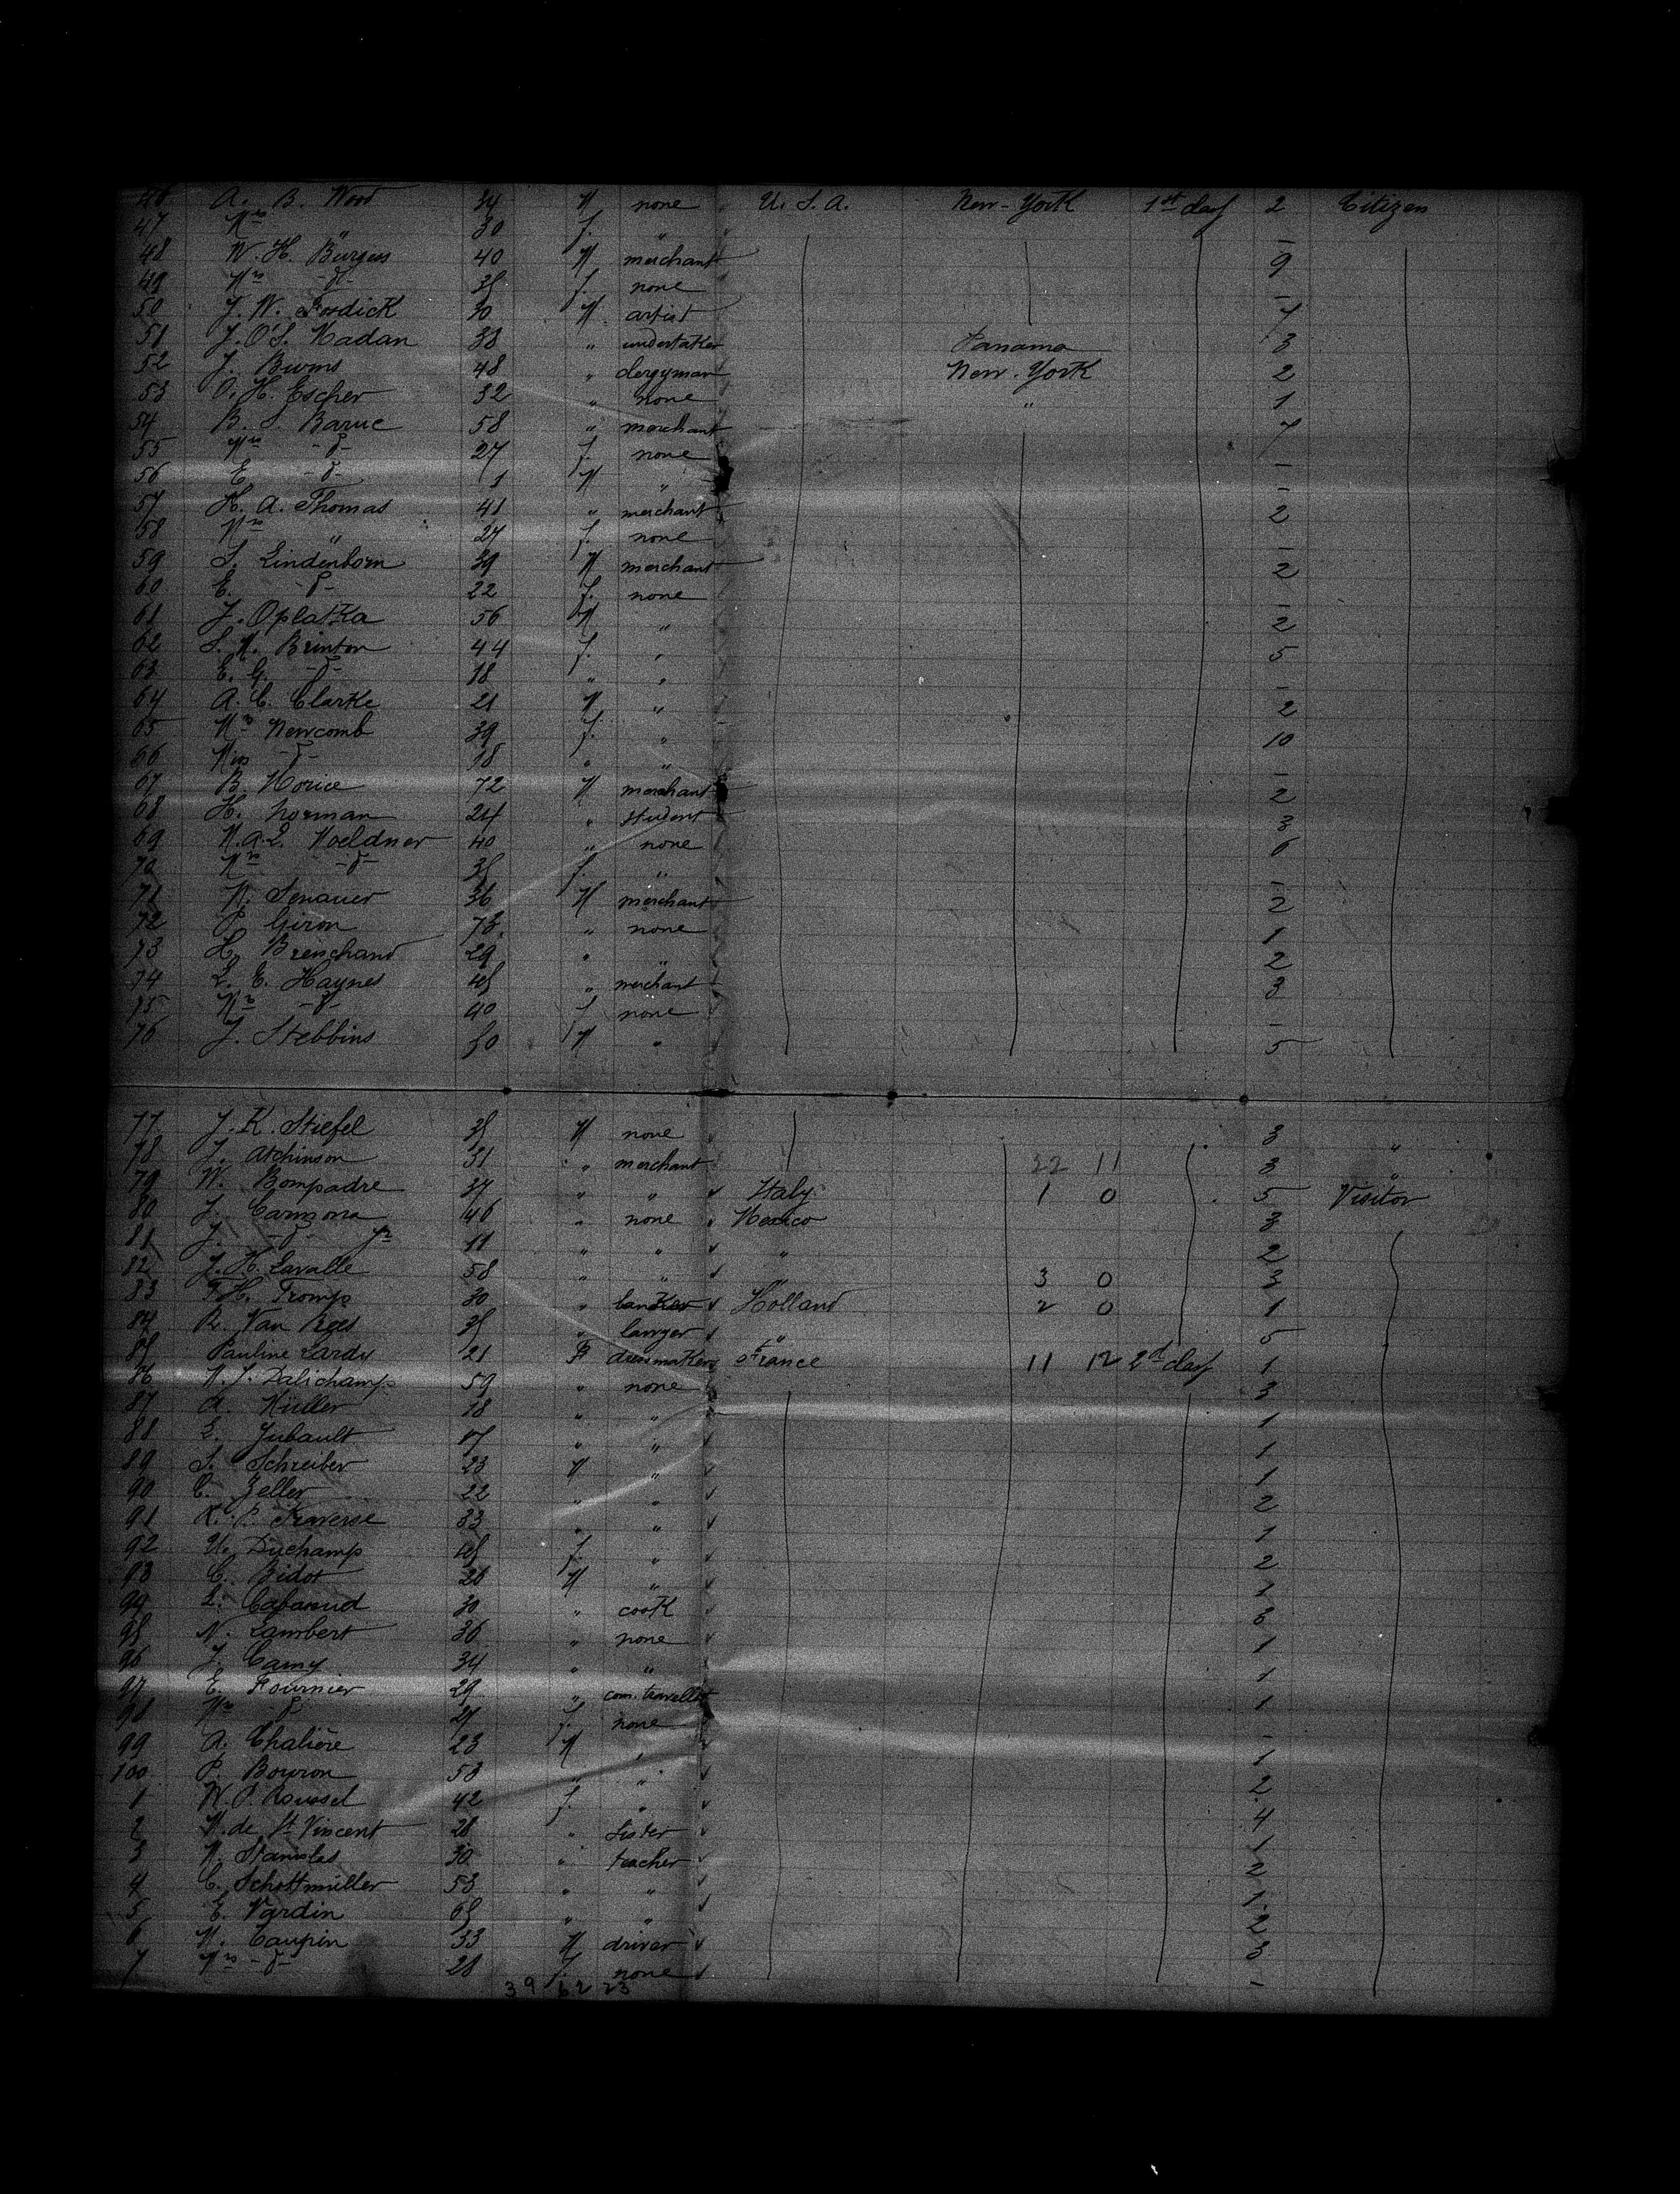 46 A. B. Wood 34 M none U. S. A. New-York 1st day 2 Citizen
47 Mrs " 30 f. " -
48 W. H. Burgess 40 M merchant 9
49 Mrs -d- 35 f. none -
50 J. W. Fosdick 30 M artist 7
51 J. O'S. Madan 38 " undertaker Panama 3
52 J. Burns 48 " clergyman New-York 2
53 O. H. Escher 32 " none " 1
54 B. S. Baruc 58 " merchant 7
55 Mrs -d- 27 f. none -
56 E -d- 1 M " -
57 H. A. Thomas 41 " merchant 2
58 Mrs " 27 f. none -
59 S. Lindenborn 39 M merchant 2
60 E. -d- 22 f. none -
61 J. Oplatka 56 M " 2
62 S. M. Brinton 44 f. " 5
63 E. G. -d- 18 " " -
64 A. C. Clarke 21 M " 2
65 Mrs Newcomb 39 f. " 10
66 Miss -d- 18 " " -
67 B. Morice 72 M merchant 2
68 H. Norman 24 " student 3
69 M. A. L. Moeldner 40 " none 6
70 Mrs -d- 35 f. " -
71 M. Senauer 36 M merchant 2
72 P. Giron 73 " none 1
73 H. Brenchand 29 " " 2
74 L. E. Haynes 45 " merchant 3
75 Mrs -d- 40 f none -
76 J. Stebbins 50 M " 5
77 J. K. Stiefel 35 M none 3 "
78 J. Atchinson 31 " merchant 22 11 3 "
79 W. Bompadre 34 " " Italy 1 0 5 Visitor
80 J. Carmona 46 " none Mexico 3
81 J. -d- Jr 11 " " " 2
82 J. H. Lavalle 58 " " " 3 0 3
83 F. H. Tromp 30 " banker Holland 2 0 1
84 R. Van Rees 35 " lawyer " 5
85 Pauline Lardy 21 F dressmaker France 11 12 2d day 1
86 M. J. Dalichamp 59 " none 3
87 A. Muller 18 " " 1
88 L. Jubault 17 " " 1
89 S. Schreiber 23 M " 1
90 C. Zeller 22 " " 2
91 R. P. Traverse 33 " " 1
92 U. Duchamp 45 f. " 2
93 C. Bidot 26 M " 1
94 L. Cabanud 30 " cook 6
95 N. Lambert 36 " none 1
96 J. Camy 34 " " 1
97 E. Fournier 29 " com. traveller 1
98 Mrs -d- 27 f. none -
99 A. Chalière 23 M " 1
100 P. Bouron 53 " " 2
1 W. P. Roussel 42 f. " 4
2 M. de St Vincent 28 " Sister 1
3 M. Stanislas 30 " teacher 2
4 C. Schottmuller 53 " " 1
5 E. Vardin 65 " " 2
6 M. Caupin 33 M driver 3
7 Mrs -d- 28 f. none -
39 62 23